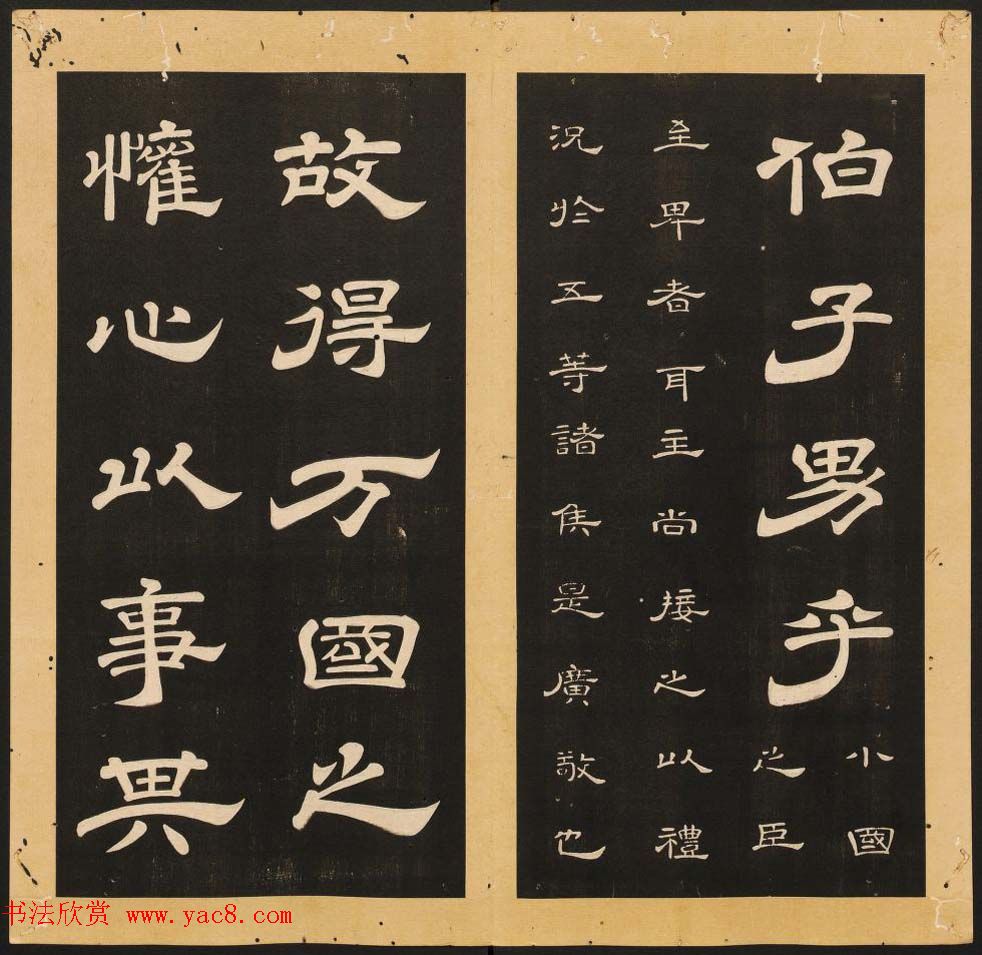 伯子男乎小國
之臣
至卑者耳主尚接之以禮
況於五等諸侯是廣敬也
故得万國之
懽心以事其
书法欣赏 www.yac8.com